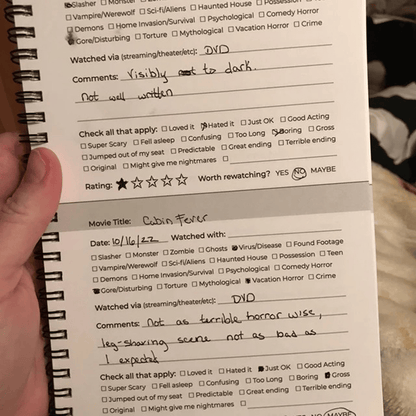 Slasher □ Monster
□ Vampire/Werewolf □ Sci-fi/Aliens □ Haunted House □ Possession
□ Demons □ Home Invasion/Survival □ Psychological □ Comedy Horror
Gore/Disturbing □ Torture □ Mythological □ Vacation Horror □ Crime
Watched via (streaming/theater/etc): DVD
Comments: Visibly to dark.
Not well written
Check all that apply: □ Loved it ☒ Hated it □ Just OK □ Good Acting
□ Super Scary □ Fell asleep □ Confusing □ Too Long ☒ Boring □ Gross
□ Jumped out of my seat □ Predictable □ Great ending □ Terrible ending
□ Original □ Might give me nightmares □
Rating: ★☆☆☆☆ Worth rewatching? YES NO MAYBE
Movie Title: Cabin Fever
Date: 10/16/22 Watched with:
□ Slasher □ Monster □ Zombie □ Ghosts ■ Virus/Disease □ Found Footage
□ Vampire/Werewolf □ Sci-fi/Aliens □ Haunted House □ Possession □ Teen
□ Demons □ Home Invasion/Survival □ Psychological □ Comedy Horror
■ Gore/Disturbing □ Torture □ Mythological ■ Vacation Horror □ Crime
Watched via (streaming/theater/etc): DVD
Comments: Not as terrible horror wise,
leg-shaving scene not as bad as
I expected
Check all that apply: □ Loved it □ Hated it ■ Just OK □ Good Acting
□ Super Scary □ Fell asleep □ Confusing □ Too Long □ Boring ■ Gross
□ Jumped out of my seat □ Predictable □ Great ending □ Terrible ending
□ Original □ Might give me nightmares □
NO MAYBE